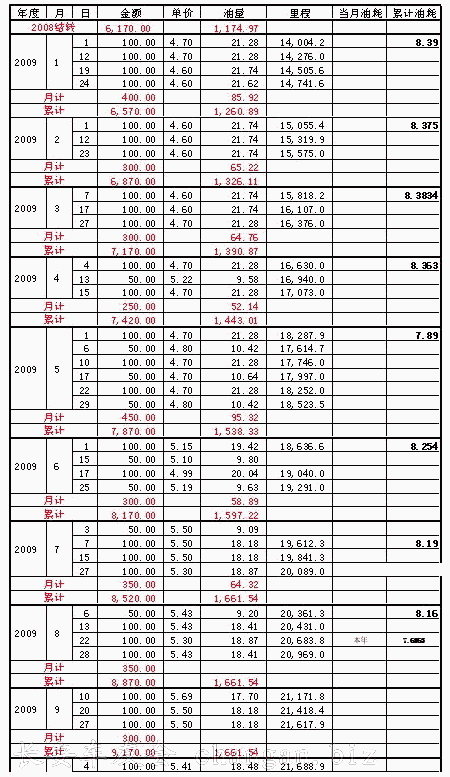 年度 月 日 金额 单价 油量 里程 当月油耗 累计油耗
2008结转 6,170.00 1,174.97
1 100.00 4.70 21.28 14,004.2 8.39
12 100.00 4.70 21.28 14,276.0
2009 1
19 100.00 4.60 21.74 14,505.6
24 100.00 4.60 21.62 14,741.6
月计 400.00 85.92
累计 6,570.00 1,260.89
1 100.00 4.60 21.74 15,055.4 8.375
2009 2 12 100.00 4.60 21.74 15,319.9
23 100.00 4.60 21.74 15,575.0
月计 300.00 65.22
累计 6,870.00 1,326.11
7 100.00 4.60 21.74 15,818.2 8.3834
2009 3 17 100.00 4.60 21.74 16,107.0
27 100.00 4.70 21.28 16,376.0
月计 300.00 64.76
累计 7,170.00 1,390.87
4 100.00 4.70 21.28 16,630.0 8.363
2009 4 13 50.00 5.22 9.58 16,940.0
15 100.00 4.70 21.28 17,073.0
月计 250.00 52.14
累计 7,420.00 1,443.01
1 100.00 4.70 21.28 18,287.9 7.89
6 50.00 4.80 10.42 17,614.7
10 100.00 4.70 21.28 17,746.0
2009 5
17 50.00 4.70 10.64 17,997.0
22 100.00 4.70 21.28 18,252.0
29 50.00 4.80 10.42 18,523.5
月计 450.00 95.32
累计 7,870.00 1,538.33
1 100.00 5.15 19.42 18,636.6 8.254
15 50.00 5.10 9.80
2009 6
17 100.00 4.99 20.04 19,040.0
25 50.00 5.19 9.63 19,291.0
月计 300.00 58.89
累计 8,170.00 1,597.22
3 50.00 5.50 9.09
7 100.00 5.50 18.18 19,612.3 8.19
2009 7
15 100.00 5.50 18.18 19,841.3
27 100.00 5.30 18.87 20,089.0
月计 350.00 64.32
累计 8,520.00 1,661.54
6 50.00 5.43 9.20 20,361.3 8.16
13 100.00 5.43 18.41 20,431.0
2009 8
22 100.00 5.30 18.87 20,683.8 本年
28 100.00 5.43 18.41 20,969.0
月计 350.00
累计 8,870.00 1,661.54
10 100.00 5.69 17.70 21,171.8
2009 9 20 100.00 5.50 18.18 21,418.4
27 100.00 5.50 18.18 21,617.9
月计 300.00
累计 9,170.00 1,661.54
4 100.00 5.41 18.48 21,688.9